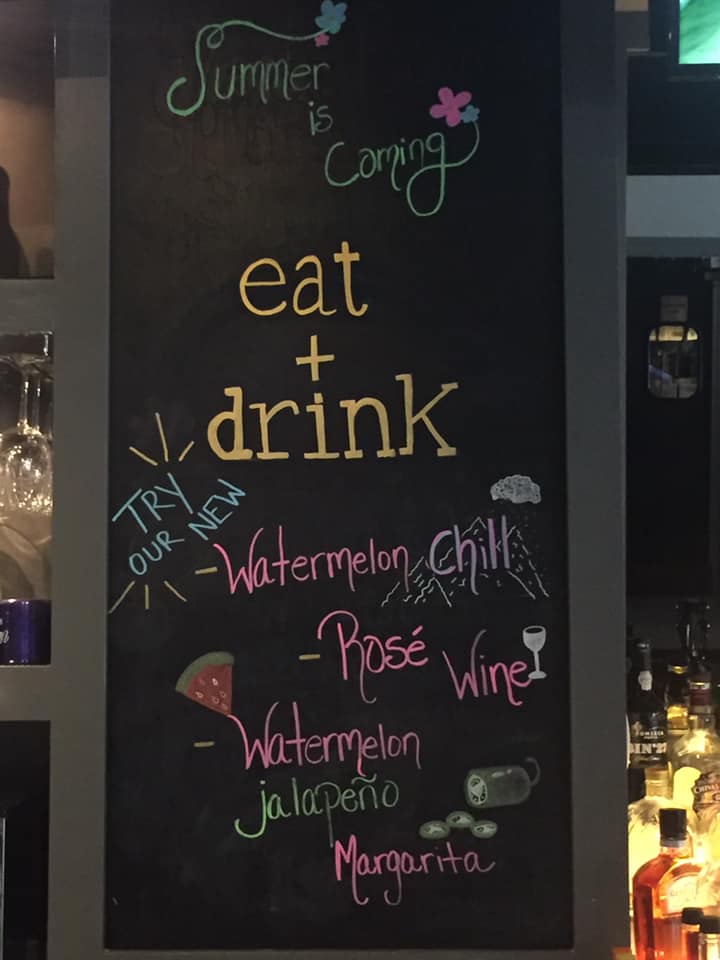 Summer
is
Coming
eat
+
drink
TRY
OUR NEW
-Watermelon Chill
-Rosé Wine
- Watermelon
jalapeño
Margarita
FONSECA
BIN 27
CHIVAS